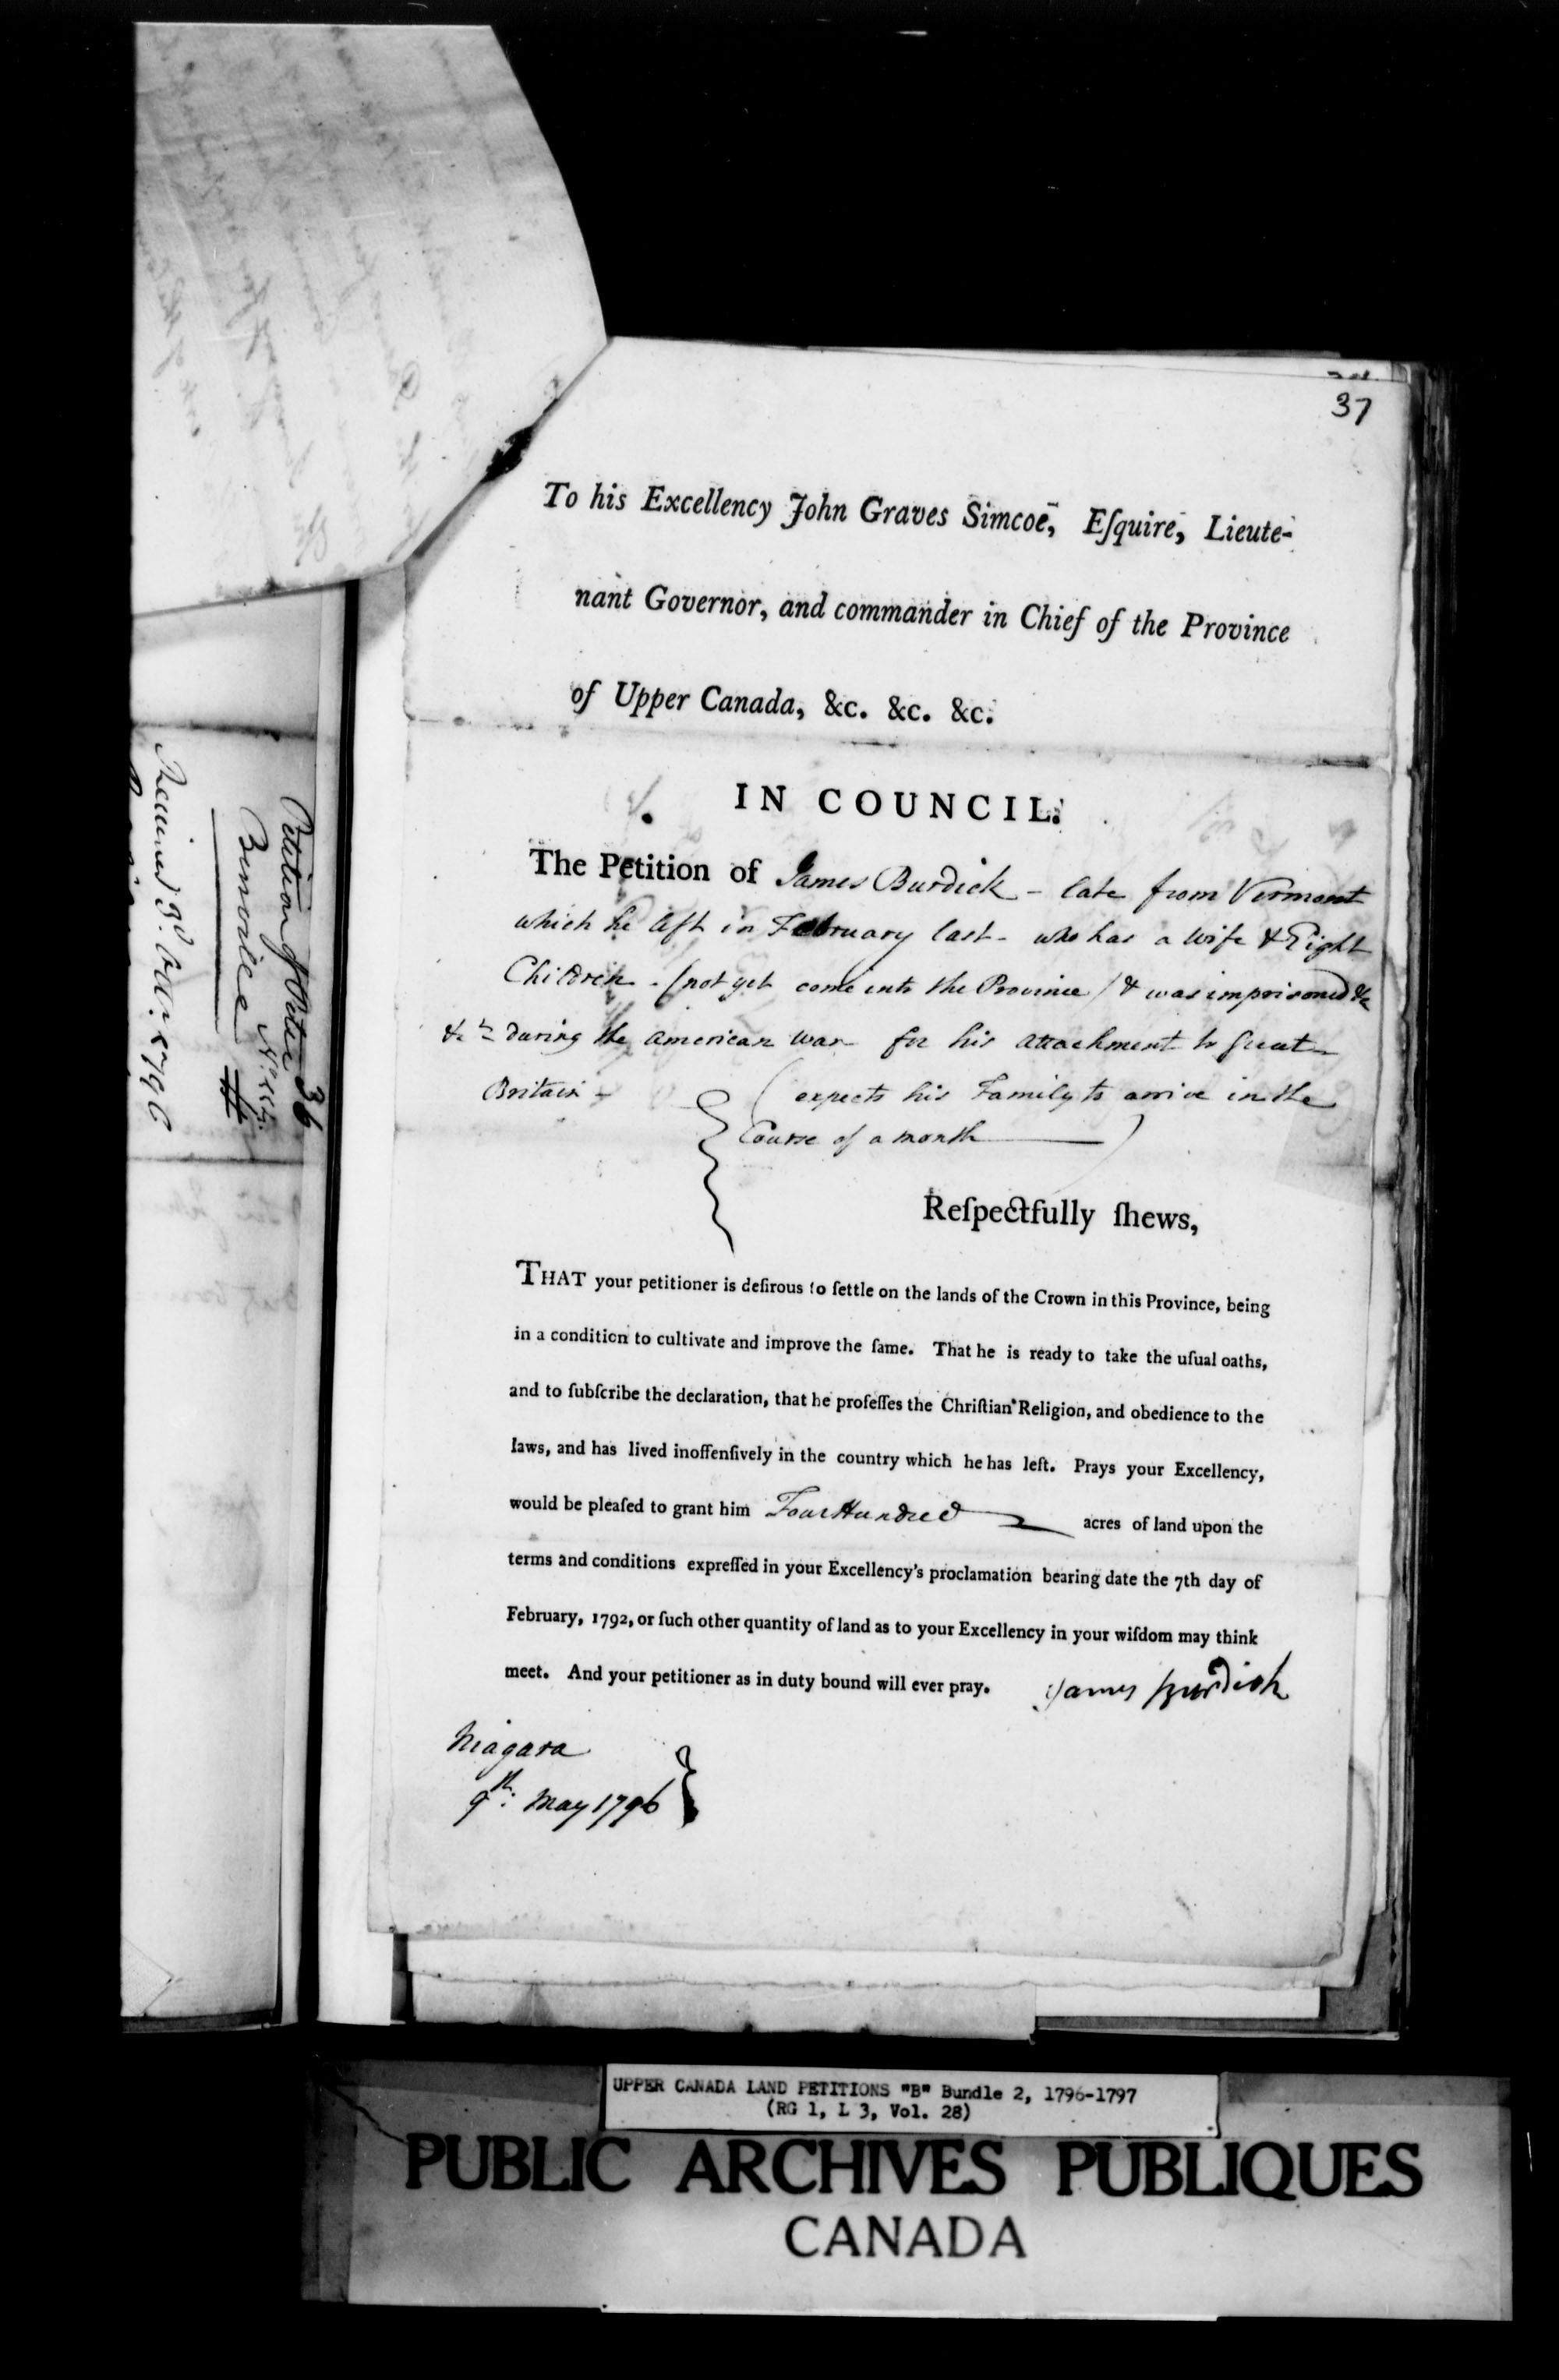 37
To his Excellency John Graves Simcoe, Eſquire, Lieute-
nant Governor, and commander in Chief of the Province
of Upper Canada, &c. &c. &c.
IN COUNCIL:
The Petition of James Burdick - late from Vermont
which he left in February last - who has a wife & Eight
Children - (not yet come into the Province) & was imprisoned &c
&c during the American war for his attachment to Great
Britain - (expects his Family to arrive in the
Course of a month)
Reſpectfully ſhews,
THAT your petitioner is deſirous to ſettle on the lands of the Crown in this Province, being
in a condition to cultivate and improve the ſame. That he is ready to take the uſual oaths,
and to ſubſcribe the declaration, that he profeſſes the Chriſtian Religion, and obedience to the
laws, and has lived inoffenſively in the country which he has left. Prays your Excellency,
would be pleaſed to grant him Four Hundred acres of land upon the
terms and conditions expreſſed in your Excellency's proclamation bearing date the 7th day of
February, 1792, or ſuch other quantity of land as to your Excellency in your wiſdom may think
meet. And your petitioner as in duty bound will ever pray. James Burdick
Niagara
9th: May 1796
36
Petition of Peter
Bunville
Received 3d Octr. 1796
UPPER CANADA LAND PETITIONS "B" Bundle 2, 1796-1797
(RG 1, L 3, Vol. 28)
PUBLIC ARCHIVES PUBLIQUES
CANADA